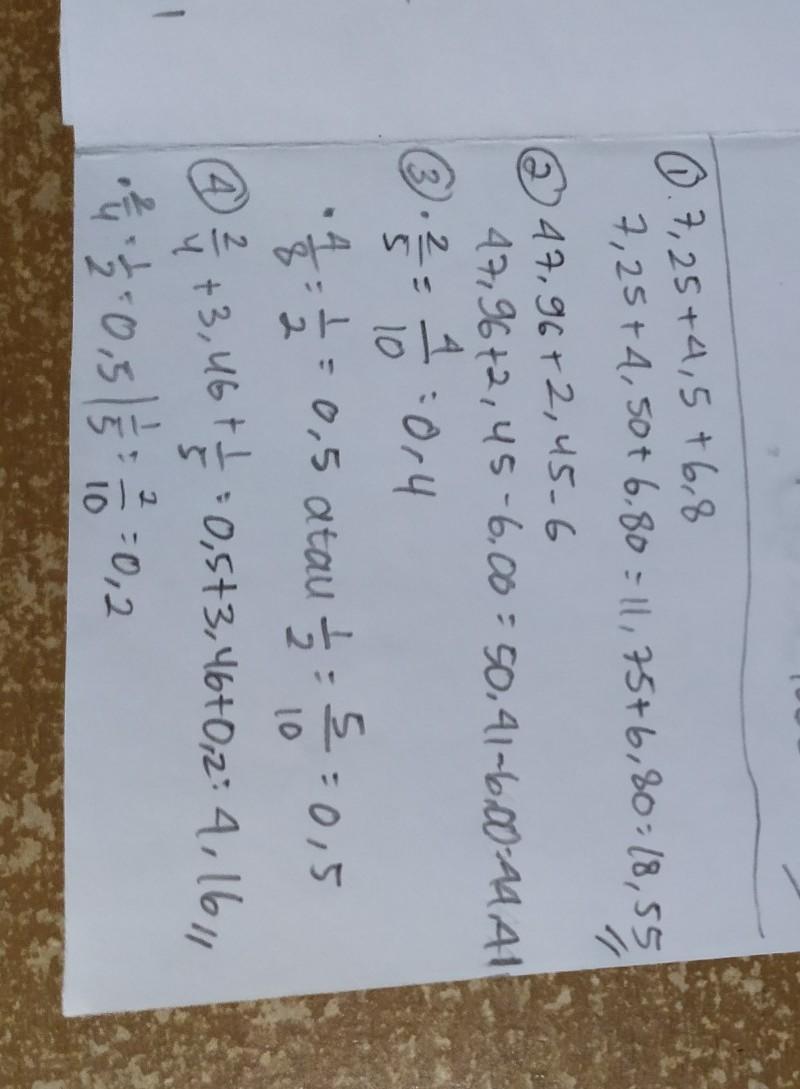 ① . 7,25 + 4,5 + 6,8
7,25 + 4,50 + 6,80 = 11,75 + 6,80 = 18,55 //
② 47,96 + 2,45 - 6
47,96 + 2,45 - 6,00 = 50,41 - 6,00 = 44,41
③ • 2/5 = 4/10 = 0,4
• 4/8 = 1/2 = 0,5 atau 1/2 = 5/10 = 0,5
④ 2/4 + 3,46 + 1/5 = 0,5 + 3,46 + 0,2 = 4,16 //
• 2/4 = 1/2 = 0,5 | 1/5 = 2/10 = 0,2